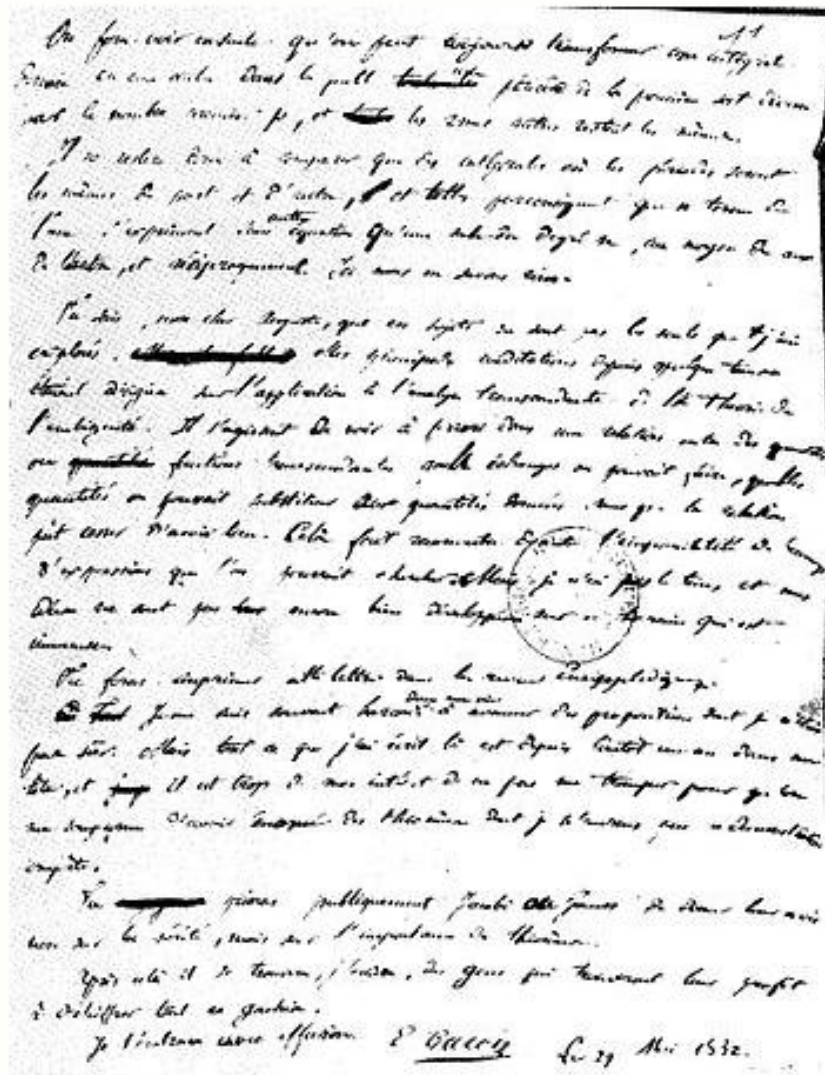 11
On fera voir ensuite qu'on peut toujours transformer une intégrale
donnée en une autre dans laquelle une période de la première soit divisée
par le nombre premier p, et les autres restent les mêmes.
Il ne restera donc à comparer que des intégrales où les périodes seront
les mêmes de part et d'autre, et telles par conséquent que n termes de
l'une s'expriment sans autre équation qu'une seule du degré n, au moyen de ceux
de l'autre, et réciproquement. Ici nous ne savons rien.
Tu sais, mon cher Auguste, que ces sujets ne sont pas les seuls que j'aie
explorés. Mes principales méditations depuis quelque temps
étaient dirigées sur l'application à l'analyse transcendante de la théorie de
l'ambiguité. Il s'agissait de voir à priori dans une relation entre des quantités
ou fonctions transcendantes quels échanges on pouvait faire, quelles
quantités on pouvait substituer aux quantités données sans que la relation
pût cesser d'avoir lieu. Cela fait reconnaître l'impossibilité de beaucoup
d'expressions que l'on pourrait chercher. Mais je n'ai pas le temps et mes
idées ne sont pas encore bien développées sur ce terrain qui est
immense.
Tu feras imprimer cette lettre dans la revue Encyclopédique.
Je me suis souvent hasardé dans ma vie à avancer des propositions dont je n'étais
pas sûr. Mais tout ce que j'ai écrit là est depuis bientôt un an dans ma
tête, et il est trop de mon intérêt de ne pas me tromper pour qu'on
me soupçonne d'avoir énoncé des théorèmes dont je n'aurais pas la démonstration
complète.
Tu prieras publiquement Jacobi ou Gauss de donner leur avis
non sur la vérité, mais sur l'importance des théorèmes.
Après cela il se trouvera, j'espère, des gens qui trouveront leur profit
à déchiffrer tout ce gachis.
Je t'embrasse avec effusion. E Galois Le 29 Mai 1832.